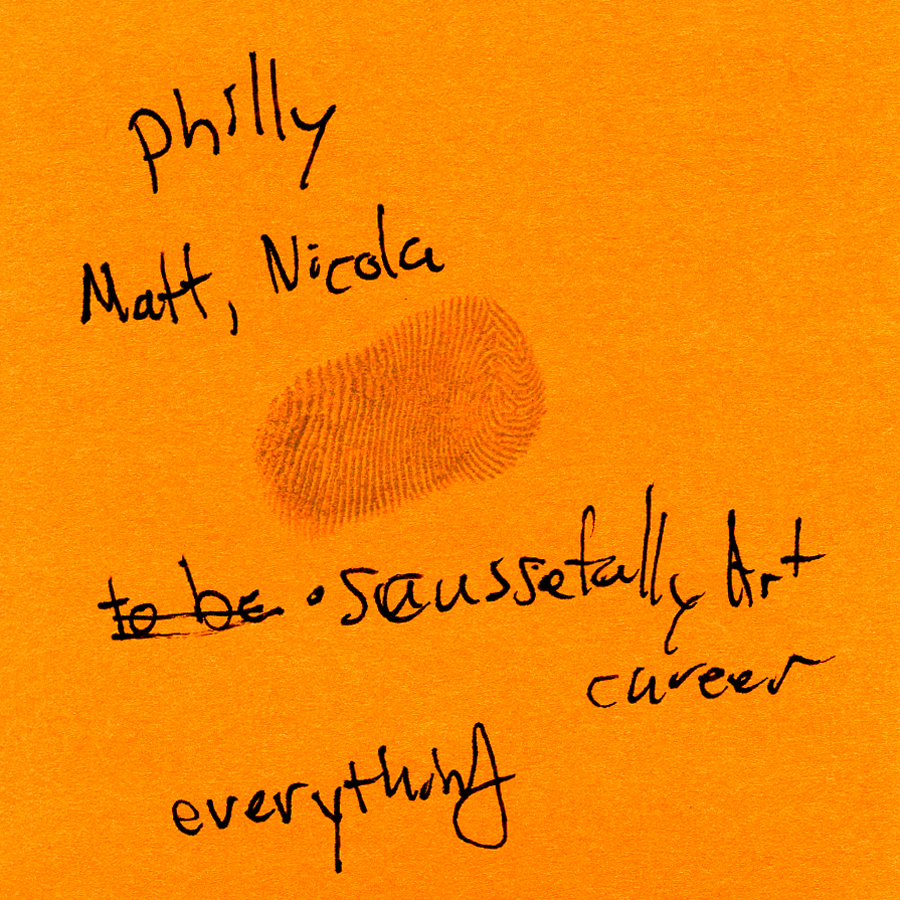 philly
Matt, Nicola
to be • saussefally Art
career
everything